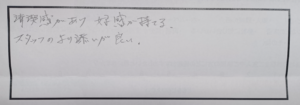 清潔感があり 好感が持てる.
スタッフのより添いが良い.